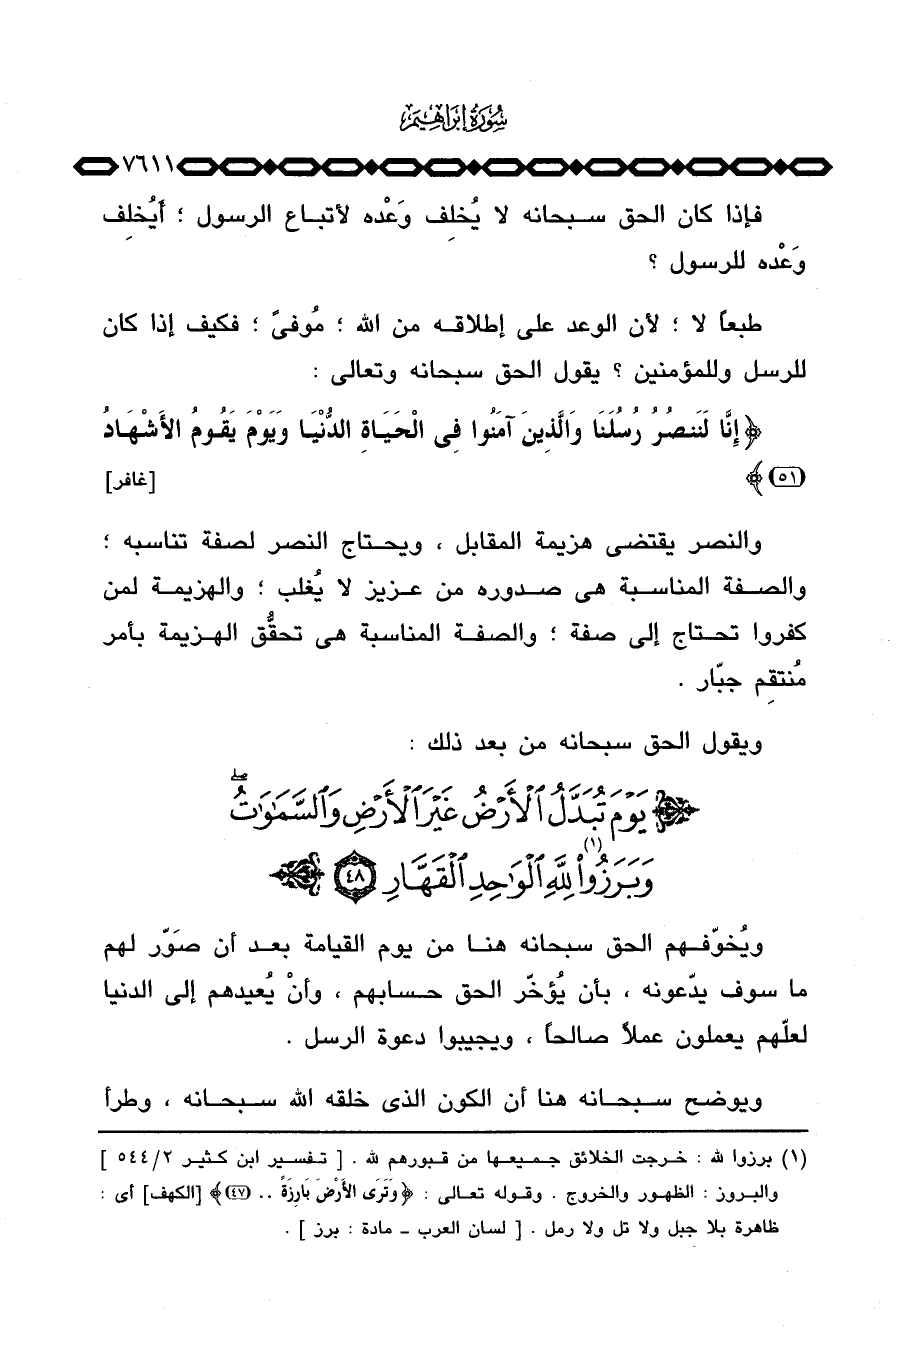 سُورَةُ إِبْرَاهِيمَ
٧٦١١
فإذا كان الحق سبحانه لا يُخلِف وَعْده لأتباع الرسول ؛ أيُخلِف
وَعْده للرسول ؟
طبعاً لا ؛ لأن الوعد على إطلاقه من الله ؛ مُوفىً ؛ فكيف إذا كان
للرسل وللمؤمنين ؟ يقول الحق سبحانه وتعالى :
﴿ إِنَّا لَنَنصُرُ رُسُلَنَا وَالَّذِينَ آمَنُوا فِى الْحَيَاةِ الدُّنْيَا وَيَوْمَ يَقُومُ الأَشْهَادُ
(٥١) ﴾ [غافر]
والنصر يقتضى هزيمة المقابل ، ويحتاج النصر لصفة تناسبه ؛
والصفة المناسبة هى صدوره من عزيز لا يُغلب ؛ والهزيمة لمن
كفروا تحتاج إلى صفة ؛ والصفة المناسبة هى تحقُّق الهزيمة بأمر
مُنتقِم جبّار .
ويقول الحق سبحانه من بعد ذلك :
﴿ يَوْمَ تُبَدَّلُ ٱلْأَرْضُ غَيْرَ ٱلْأَرْضِ وَٱلسَّمَٰوَٰتُۖ
وَبَرَزُواْ(١) لِلَّهِ ٱلْوَٰحِدِ ٱلْقَهَّارِ ٤٨ ﴾
ويُخوّفهم الحق سبحانه هنا من يوم القيامة بعد أن صَوّر لهم
ما سوف يدّعونه ، بأن يُؤخّر الحق حسابهم ، وأنْ يُعيدهم إلى الدنيا
لعلّهم يعملون عملاً صالحاً ، ويجيبوا دعوة الرسل .
ويوضح سبحانه هنا أن الكون الذى خلقه الله سبحانه ، وطرأ
(١) برزوا لله : خرجت الخلائق جميعها من قبورهم لله . [ تفسير ابن كثير ٥٤٤/٢ ]
والبروز : الظهور والخروج . وقوله تعالى : ﴿ وَتَرَى الأَرْضَ بَارِزَةً .. (٤٧) ﴾ [الكهف] أى :
ظاهرة بلا جبل ولا تل ولا رمل . [ لسان العرب - مادة : برز ] .